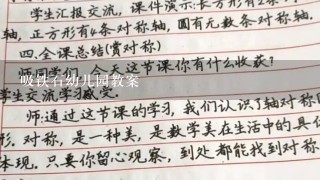 学生汇报交流，课件演示：长方形有2条
轴，正方形有4条对称轴，圆有无数条对称轴.
四.全课总结(赏对称)
今天这节课你有什么收获?
吸铁石幼儿园教案
学生交流学习感受.
师:通过这节课的学习，我们认识了轴对称
形.对称，是一种美，是数学美在生活中的具
体现.只要你留心观察，到处都能找到对称